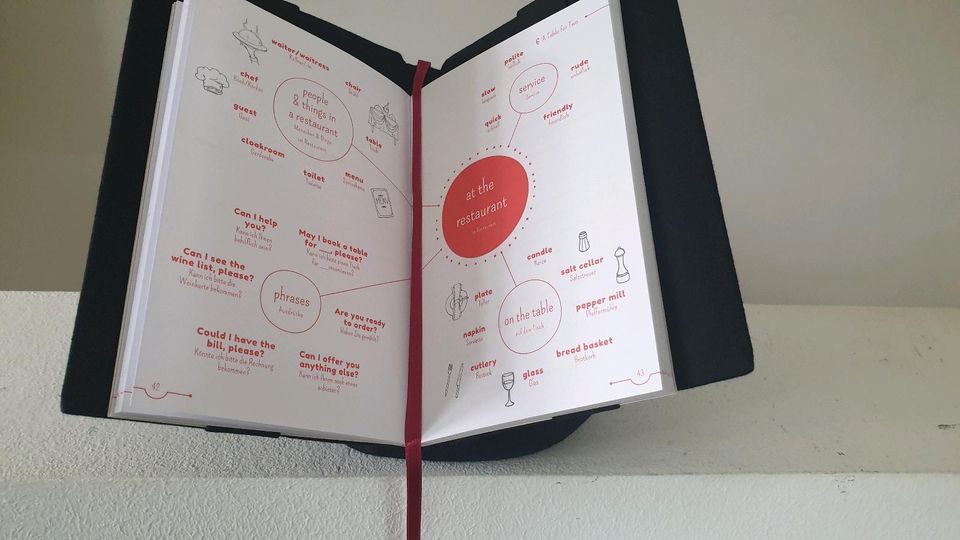 waiter/waitress
Kellner/-in
chef
Koch/Köchin
chair
Stuhl
guest
Gast
people
& things in
a restaurant
Menschen & Dinge
im Restaurant
table
Tisch
cloakroom
Garderobe
toilet
Toilette
menu
Speisekarte
MENU
Can I help
you?
Kann ich Ihnen
behilflich sein?
May I book a table
for ___, please?
Kann ich bitte einen Tisch
für ___ reservieren?
Can I see the
wine list, please?
Kann ich bitte die
Weinkarte bekommen?
phrases
Ausdrücke
Are you ready
to order?
Haben Sie gewählt?
Could I have the
bill, please?
Könnte ich bitte die Rechnung
bekommen?
Can I offer you
anything else?
Kann ich Ihnen noch etwas
anbieten?
42
6 A Table for Two
polite
höflich
rude
unhöflich
slow
langsam
service
Service
quick
schnell
friendly
freundlich
at the
restaurant
im Restaurant
candle
Kerze
salt cellar
Salzstreuer
plate
Teller
on the table
auf dem Tisch
pepper mill
Pfeffermühle
napkin
Serviette
cutlery
Besteck
glass
Glas
bread basket
Brotkorb
43